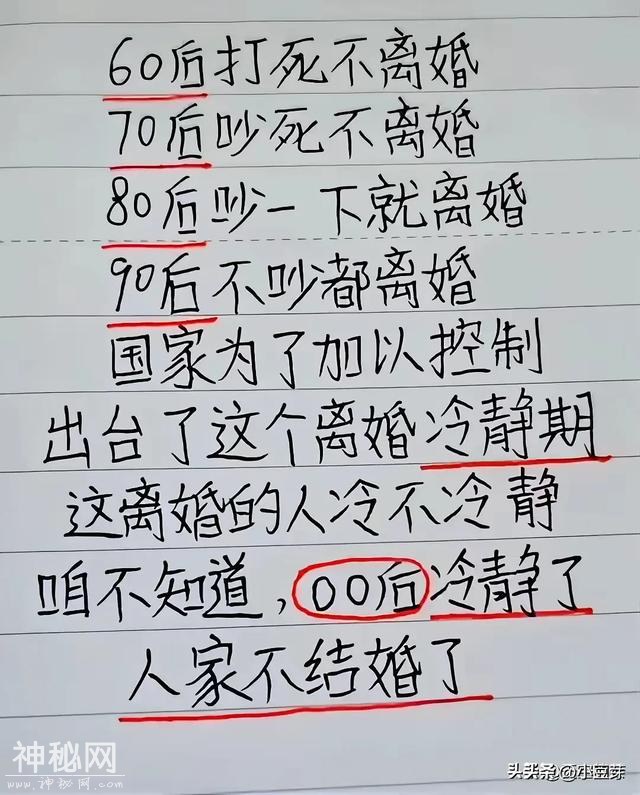 60后打死不离婚
70后吵死不离婚
80后吵一下就离婚
90后不吵都离婚
国家为了加以控制
出台了这个离婚冷静期
这离婚的人冷不冷静
咱不知道，00后冷静了
人家不结婚了
神秘网
www.神秘网.com
头条@小豆芽